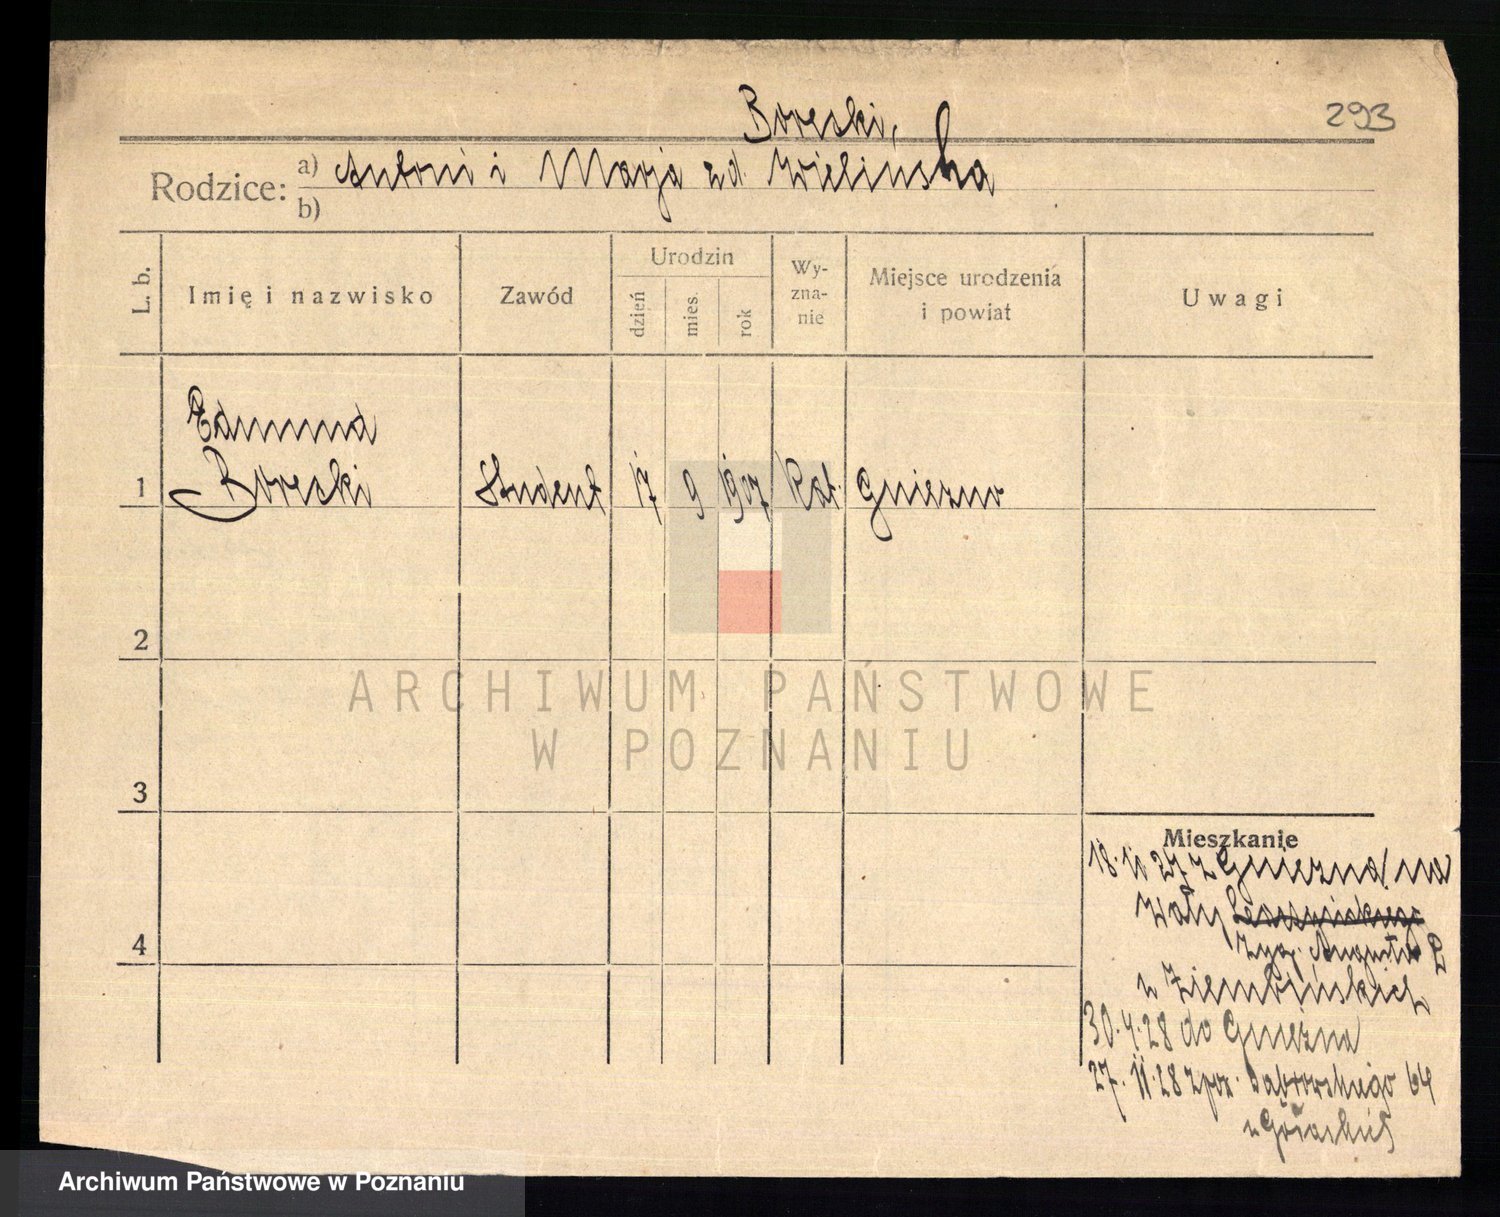 Boreski,
293
Rodzice: a) Antoni i Marja z d. Zielińska
b)
L. b.
Imię i nazwisko
Zawód
Urodzin
dzień
mies.
rok
Wy-
zna-
nie
Miejsce urodzenia
i powiat
Uwagi
Edmund
1 Boreski Student 17 9 1907 Kat. Gniezno
2
3
4
Mieszkanie
18.10 27 z Gniezna na
Wały
Zyg. Augusta 2
u Ziembińskich
30.4.28 do Gniezna
27.11.28 z poz. Dąbrowskiego 64
ARCHIWUM PAŃSTWOWE
W POZNANIU
Archiwum Państwowe w Poznaniu